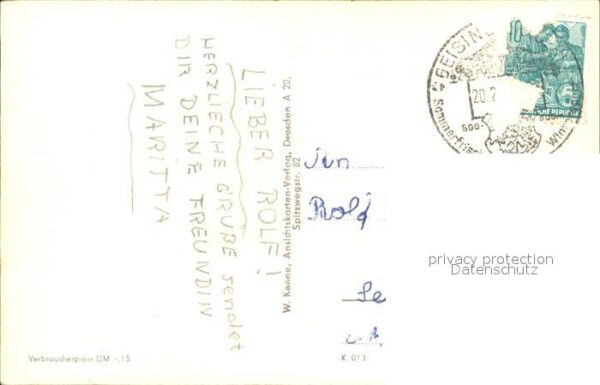 LIEBER ROLF!
HERZLIECHE GRÜBE sendet
DIR DEINE FREUNDIN
MARITTA
W. Kenne, Ansichtskarten-Verlag, Dresden A 20,
Spitzwegstr. 82
Rolf
GEISIN
20.2
Sommerfrisc
Win
600-
10
SCHE REPUBLIK
privacy protection
Datenschutz
Verbraucherpreis DM -,15
K 013